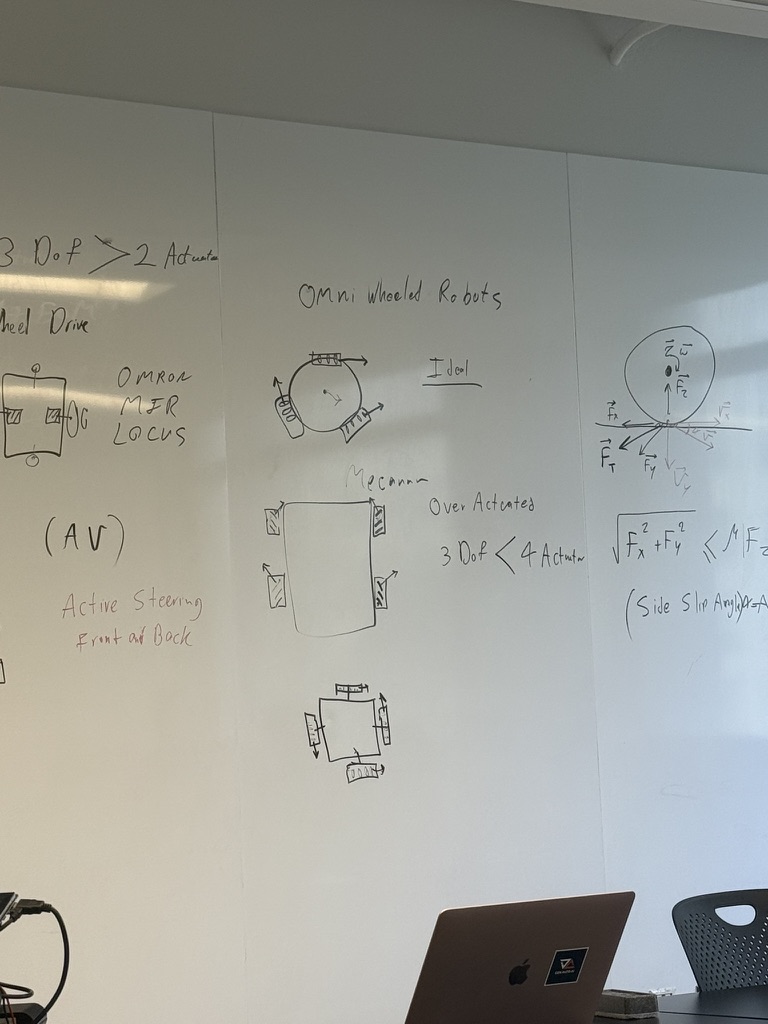 3 Dof > 2 Actuator
heel Drive
OMRON
MIR
LOCUS
(AV)
Active Steering
Front and Back
Omni Wheeled Robots
Ideal
Mecanum
Over Actuated
3 Dof < 4 Actuator
Z ω
F_z
F_x
F_T
F_y
V_y
√(F_x² + F_y²) ≤ μ|F_z
(Side Slip Angle)